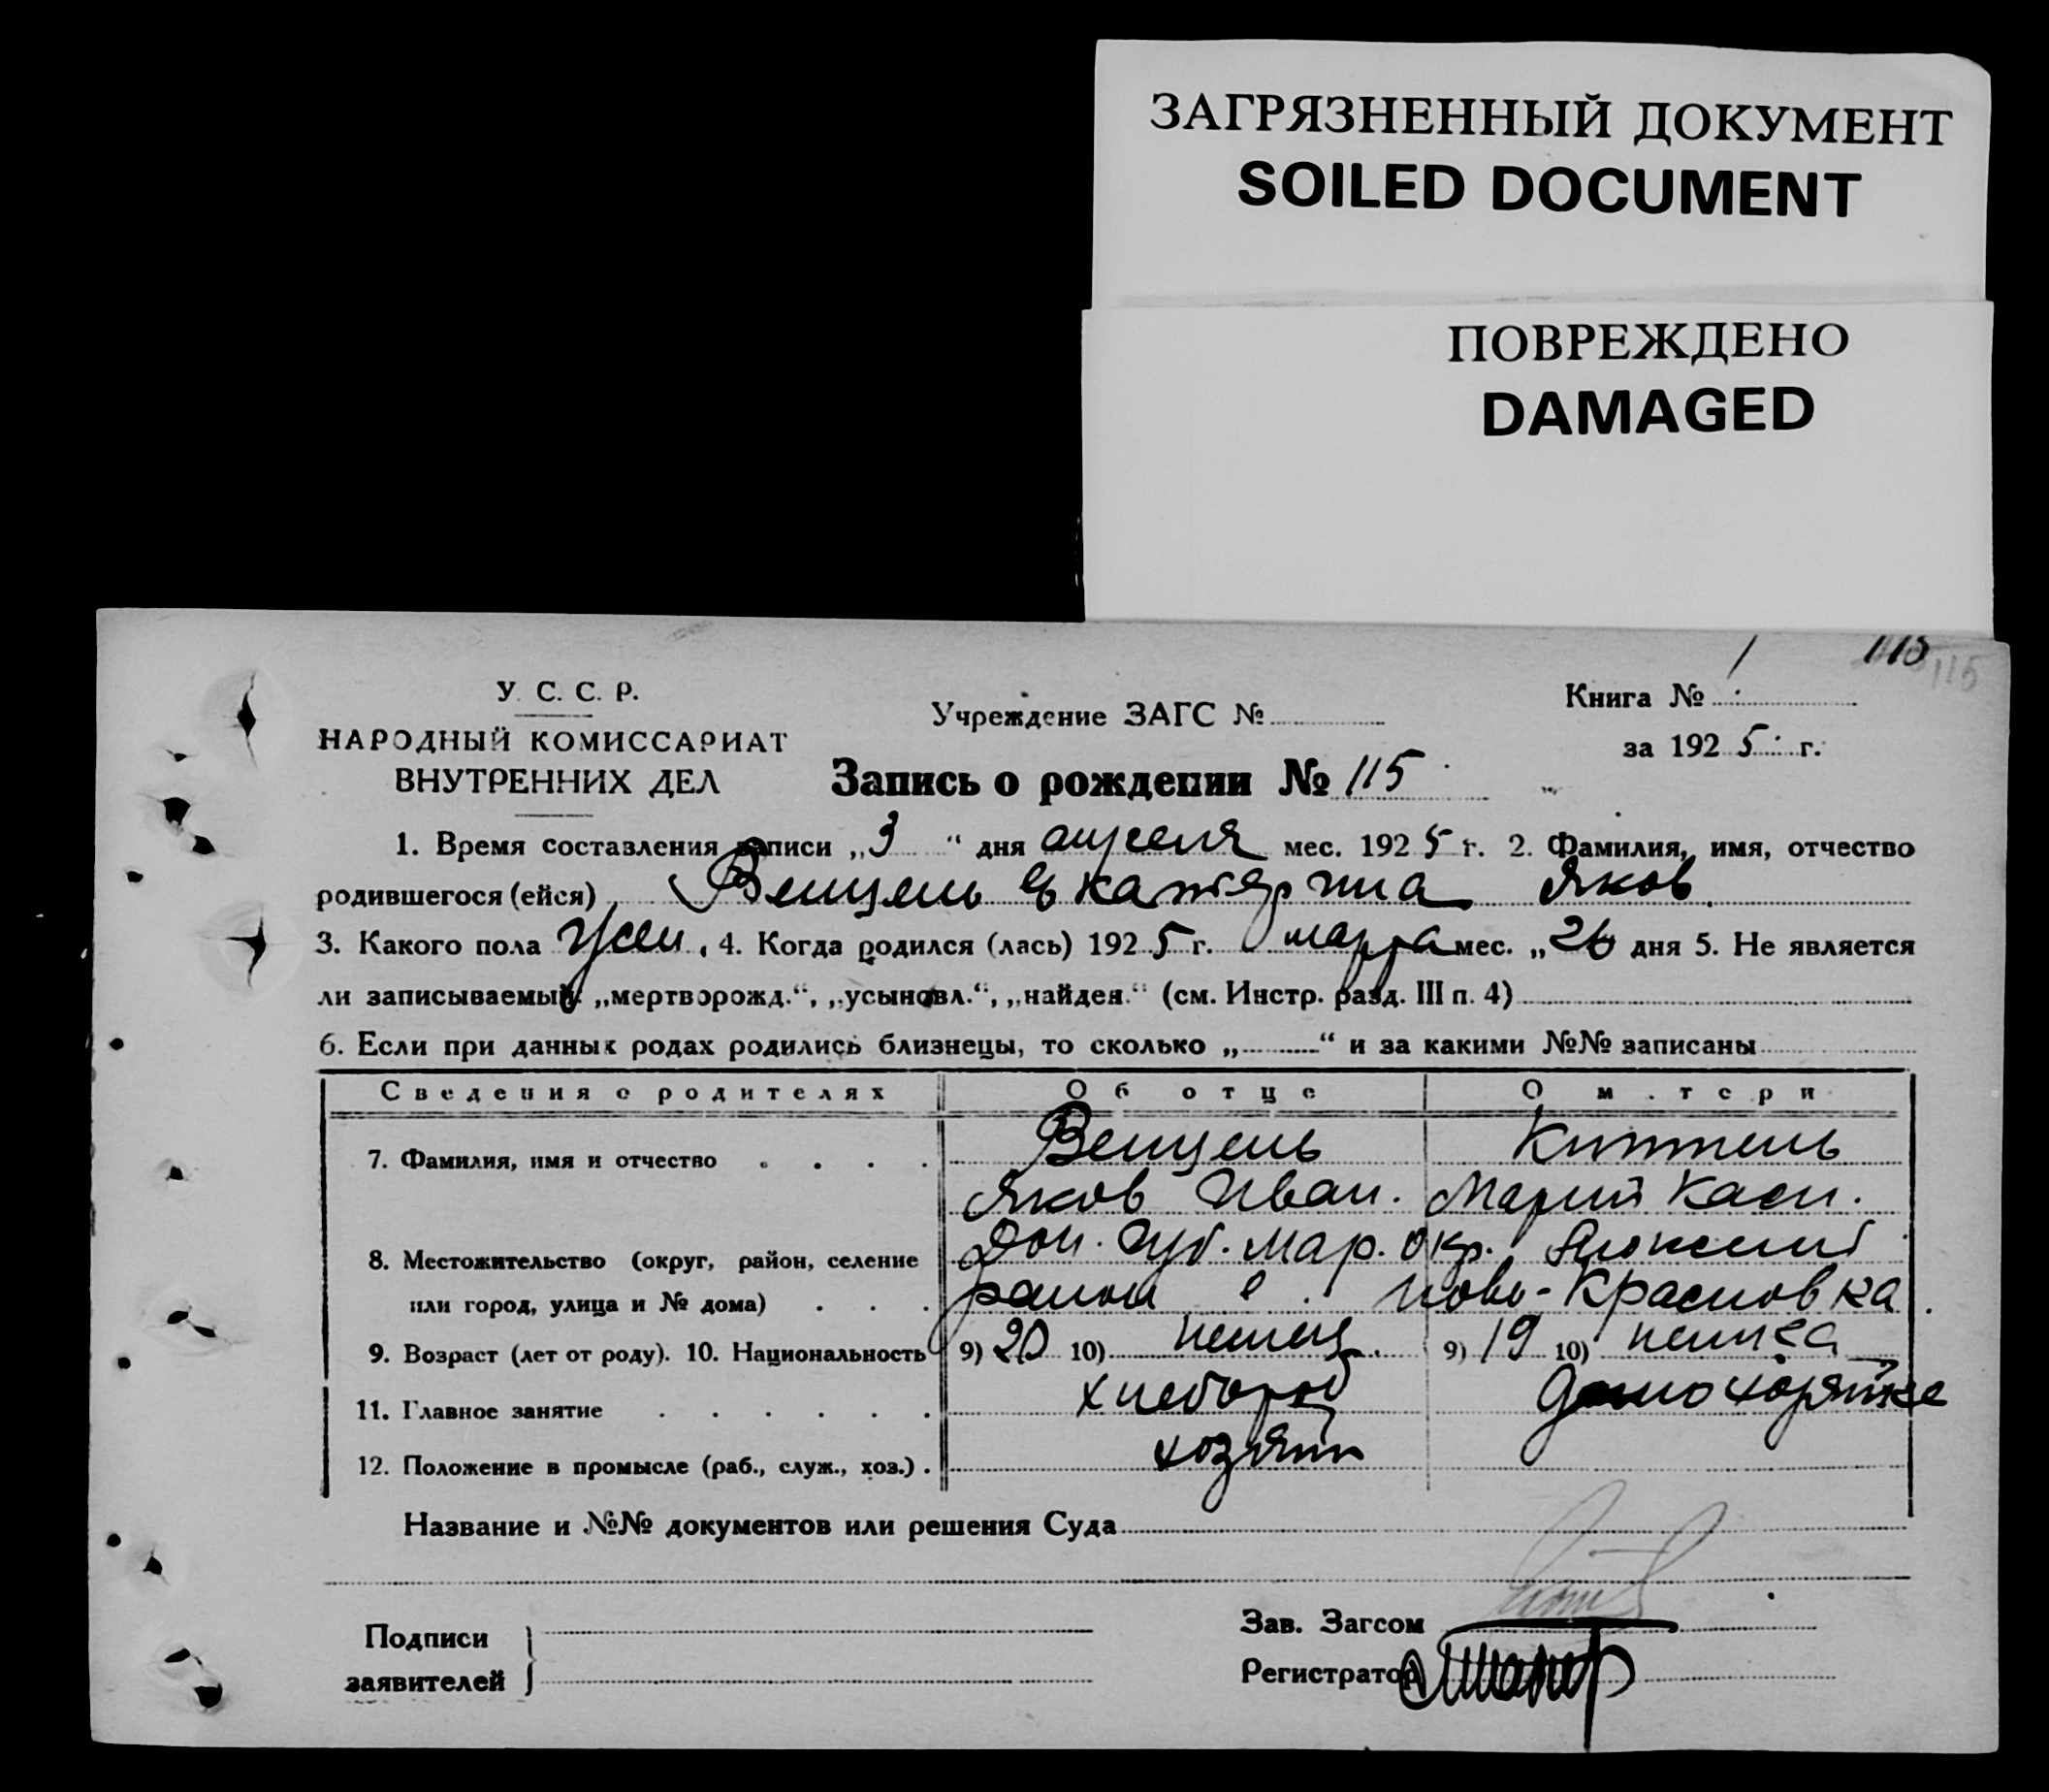 ЗАГРЯЗНЕННЫЙ ДОКУМЕНТ
SOILED DOCUMENT
ПОВРЕЖДЕНО
DAMAGED
115
115
У. С. С. Р.
Учреждение ЗАГС №
Книга № 1
НАРОДНЫЙ КОМИССАРИАТ
за 1925 г.
ВНУТРЕННИХ ДЕЛ
Запись о рождении № 115
1. Время составления записи „3“ дня апреля мес. 1925 г. 2. Фамилия, имя, отчество
родившегося (ейся) Венцель Екатерина Яков.
3. Какого пола жен. 4. Когда родился (лась) 1925 г. марта мес. „26 дня 5. Не является
ли записываемый: „мертворожд.“, „усыновл.“, „найден.“ (см. Инстр. разд. III п. 4)
6. Если при данных родах родились близнецы, то сколько „ “ и за какими №№ записаны
Сведения о родителях Об отце О м.тери
7. Фамилия, имя и отчество Венцель Киттель
Яков Иван. Мария Касп.
Дон. губ. Мар. окр.
8. Местожительство (округ, район, селение
района с. Ново-Красновка
или город, улица и № дома)
9. Возраст (лет от роду). 10. Национальность 9) 20 10) немец 9) 19 10) немка
11. Главное занятие хлебороб домохозяйка
12. Положение в промысле (раб., служ., хоз.) хозяин
Название и №№ документов или решения Суда
Подписи
заявителей
Зав. Загсом
Регистратор